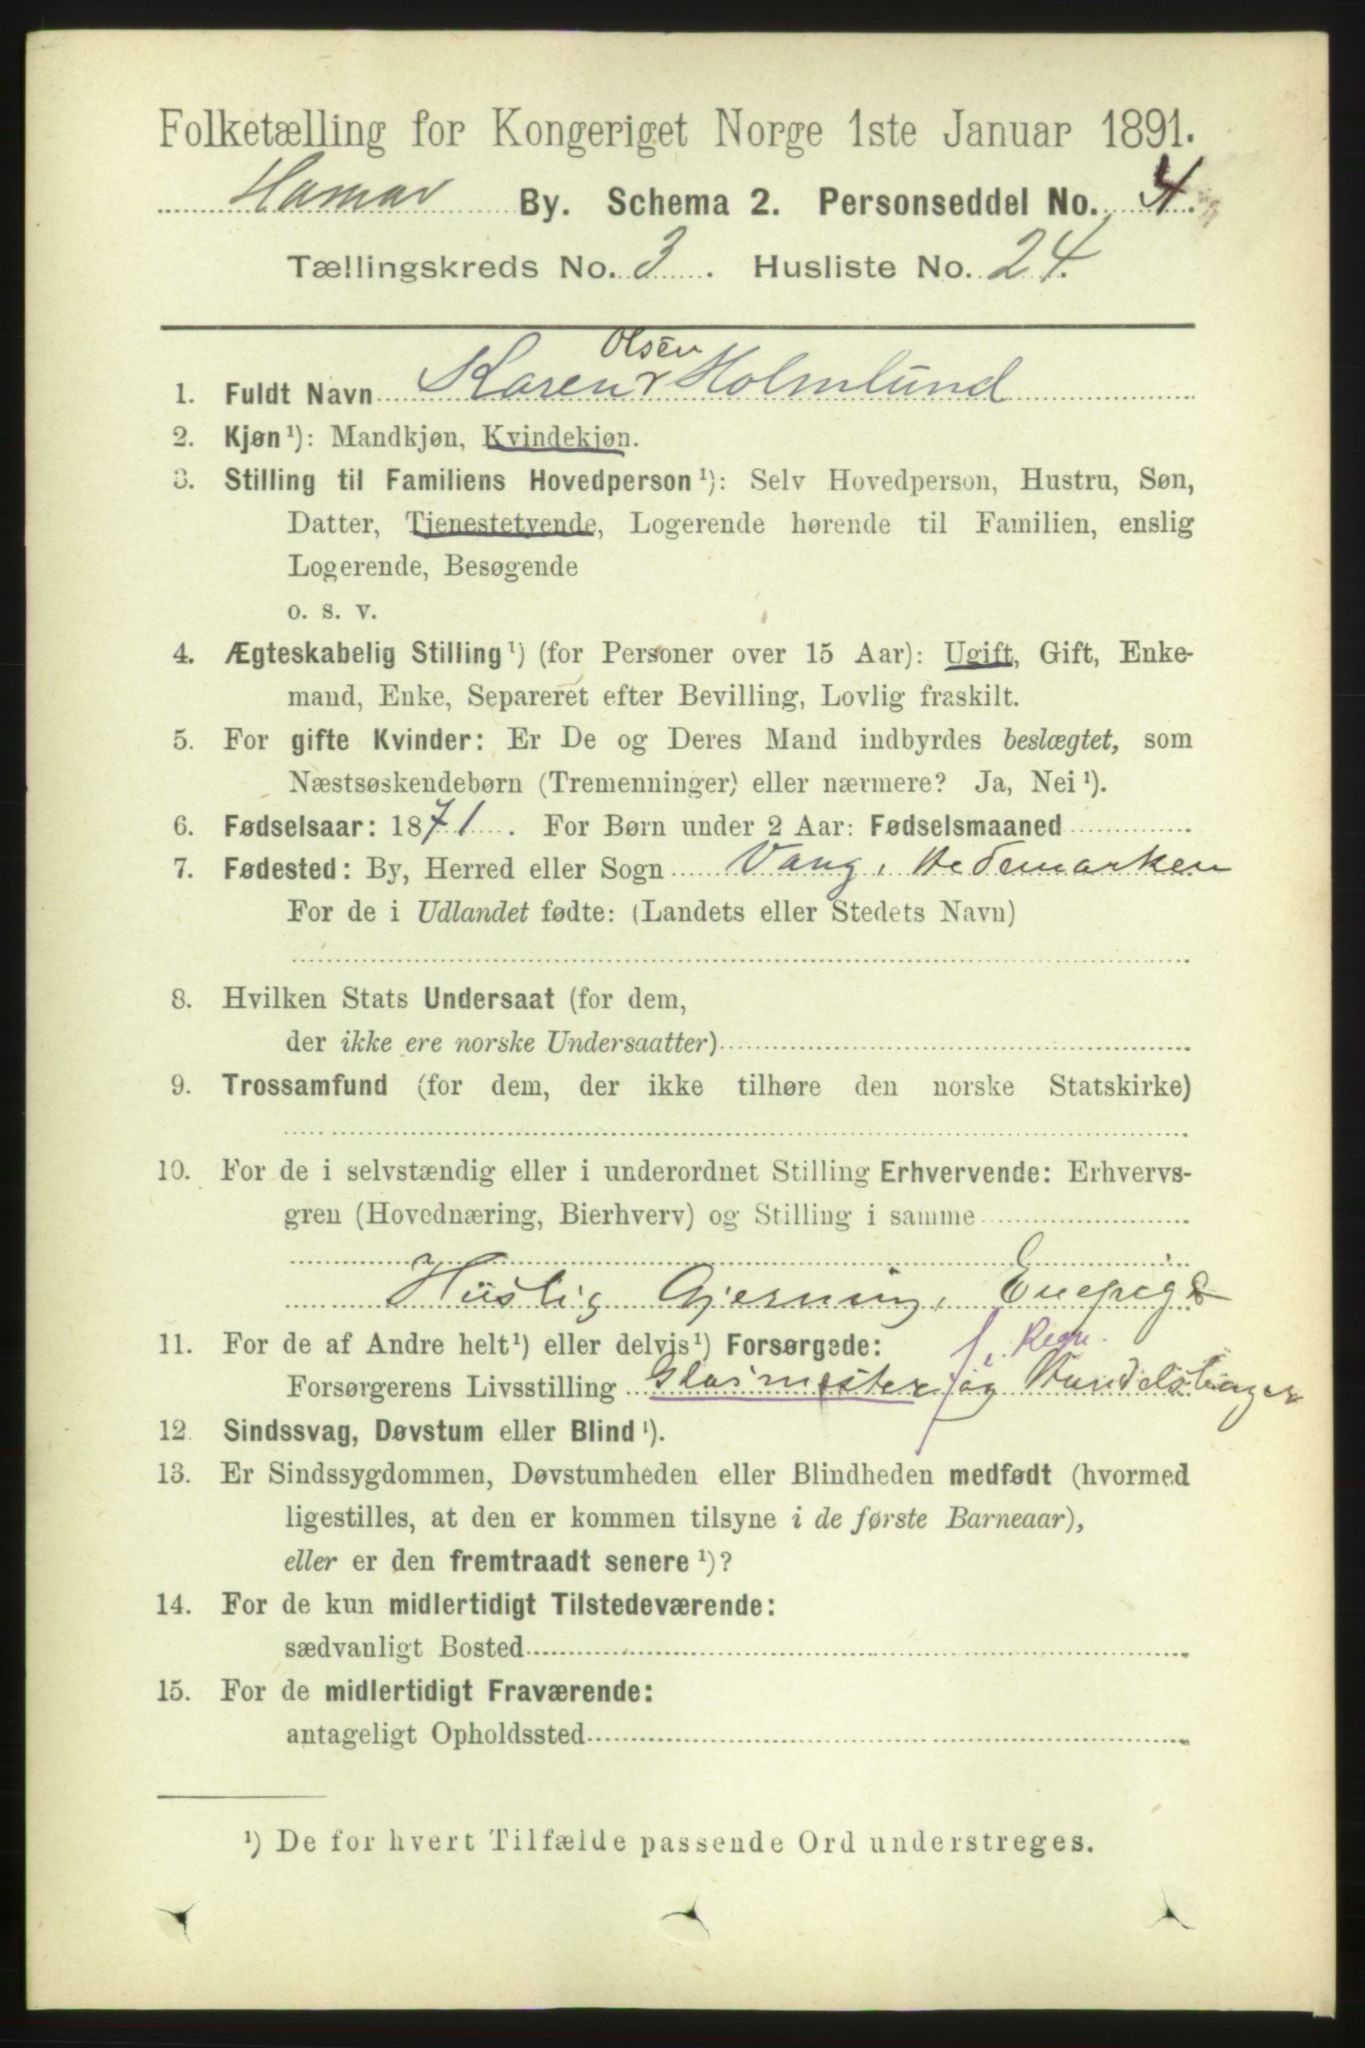 Folketælling for Kongeriget Norge 1ste Januar 1891.
Hamar By. Schema 2. Personseddel No. 4.
Tællingskreds No. 3. Husliste No. 24.
Olsen
1. Fuldt Navn Karen Holmlund
2. Kjøn¹): Mandkjøn, Kvindekjøn.
3. Stilling til Familiens Hovedperson¹): Selv Hovedperson, Hustru, Søn,
Datter, Tjenestetyende, Logerende hørende til Familien, enslig
Logerende, Besøgende
o. s. v.
4. Ægteskabelig Stilling¹) (for Personer over 15 Aar): Ugift, Gift, Enke-
mand, Enke, Separeret efter Bevilling, Lovlig fraskilt.
5. For gifte Kvinder: Er De og Deres Mand indbyrdes beslægtet, som
Næstsøskendebørn (Tremenninger) eller nærmere? Ja, Nei¹).
6. Fødselsaar: 1871. For Børn under 2 Aar: Fødselsmaaned
7. Fødested: By, Herred eller Sogn Vang, Hedemarken
For de i Udlandet fødte: (Landets eller Stedets Navn)
8. Hvilken Stats Undersaat (for dem,
der ikke ere norske Undersaatter)
9. Trossamfund (for dem, der ikke tilhøre den norske Statskirke)
10. For de i selvstændig eller i underordnet Stilling Erhvervende: Erhvervs-
gren (Hovednæring, Bierhverv) og Stilling i samme
Huslig Gjerning, Enepige
11. For de af Andre helt¹) eller delvis¹) Forsørgede:
f. Regn.
Forsørgerens Livsstilling Glasmester og
12. Sindssvag, Døvstum eller Blind¹).
13. Er Sindssygdommen, Døvstumheden eller Blindheden medfødt (hvormed
ligestilles, at den er kommen tilsyne i de første Barneaar),
eller er den fremtraadt senere¹)?
14. For de kun midlertidigt Tilstedeværende:
sædvanligt Bosted
15. For de midlertidigt Fraværende:
antageligt Opholdssted
¹) De for hvert Tilfælde passende Ord understreges.